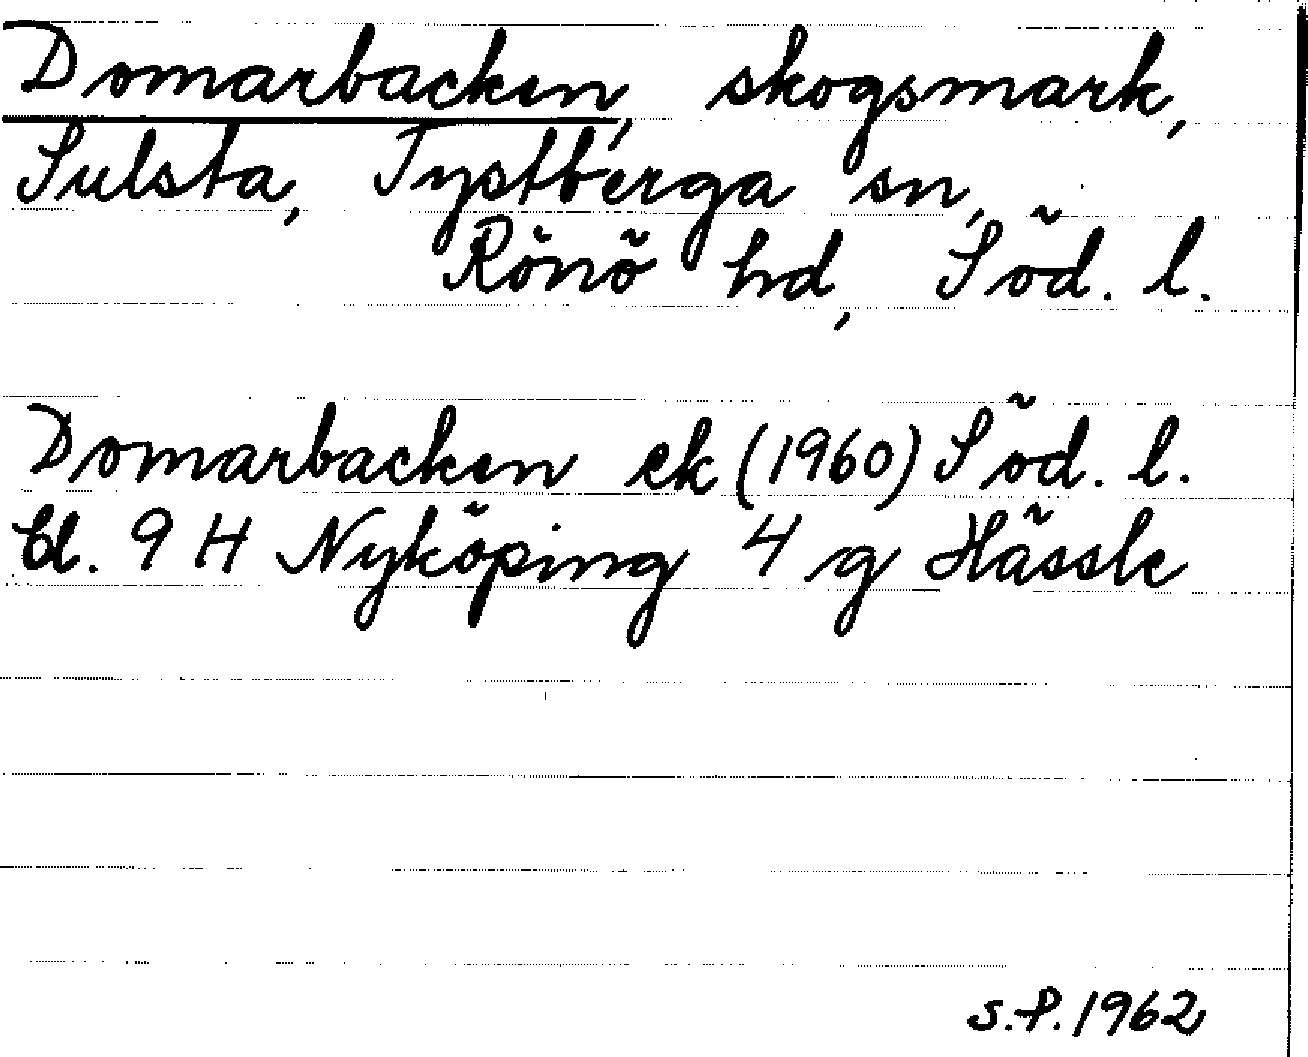 Domarbacken, skogsmark,
Sulsta, Tystberga sn,
Rönö hd, Söd. l.
Domarbacken ek (1960) Söd. l.
bl. 9 H Nyköping 4 g Hässle
S.P. 1962